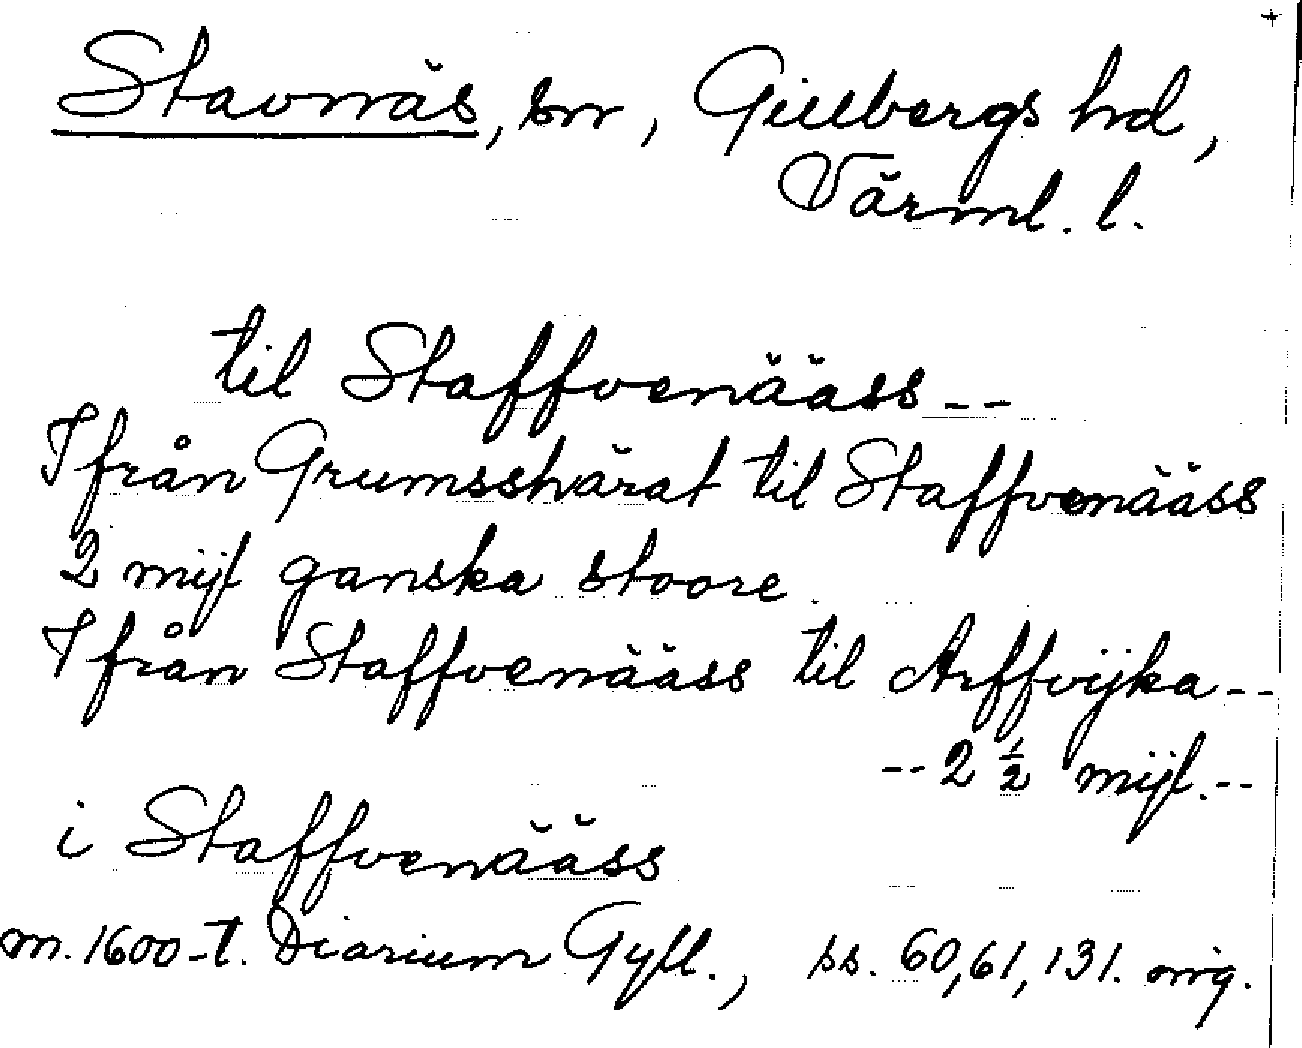 Stavnäs, sn, Gillbergs hd,
Värml. l.
til Staffvenääss --
Ifrån Grumsshärat til Staffvenääss
2 mijl ganska stoore
Ifrån Staffvenääss til Arffvijka --
-- 2 1/2 mijl. --
i Staffvenääss
m. 1600-t. Diarium Gyll., ss. 60, 61, 131. orig.